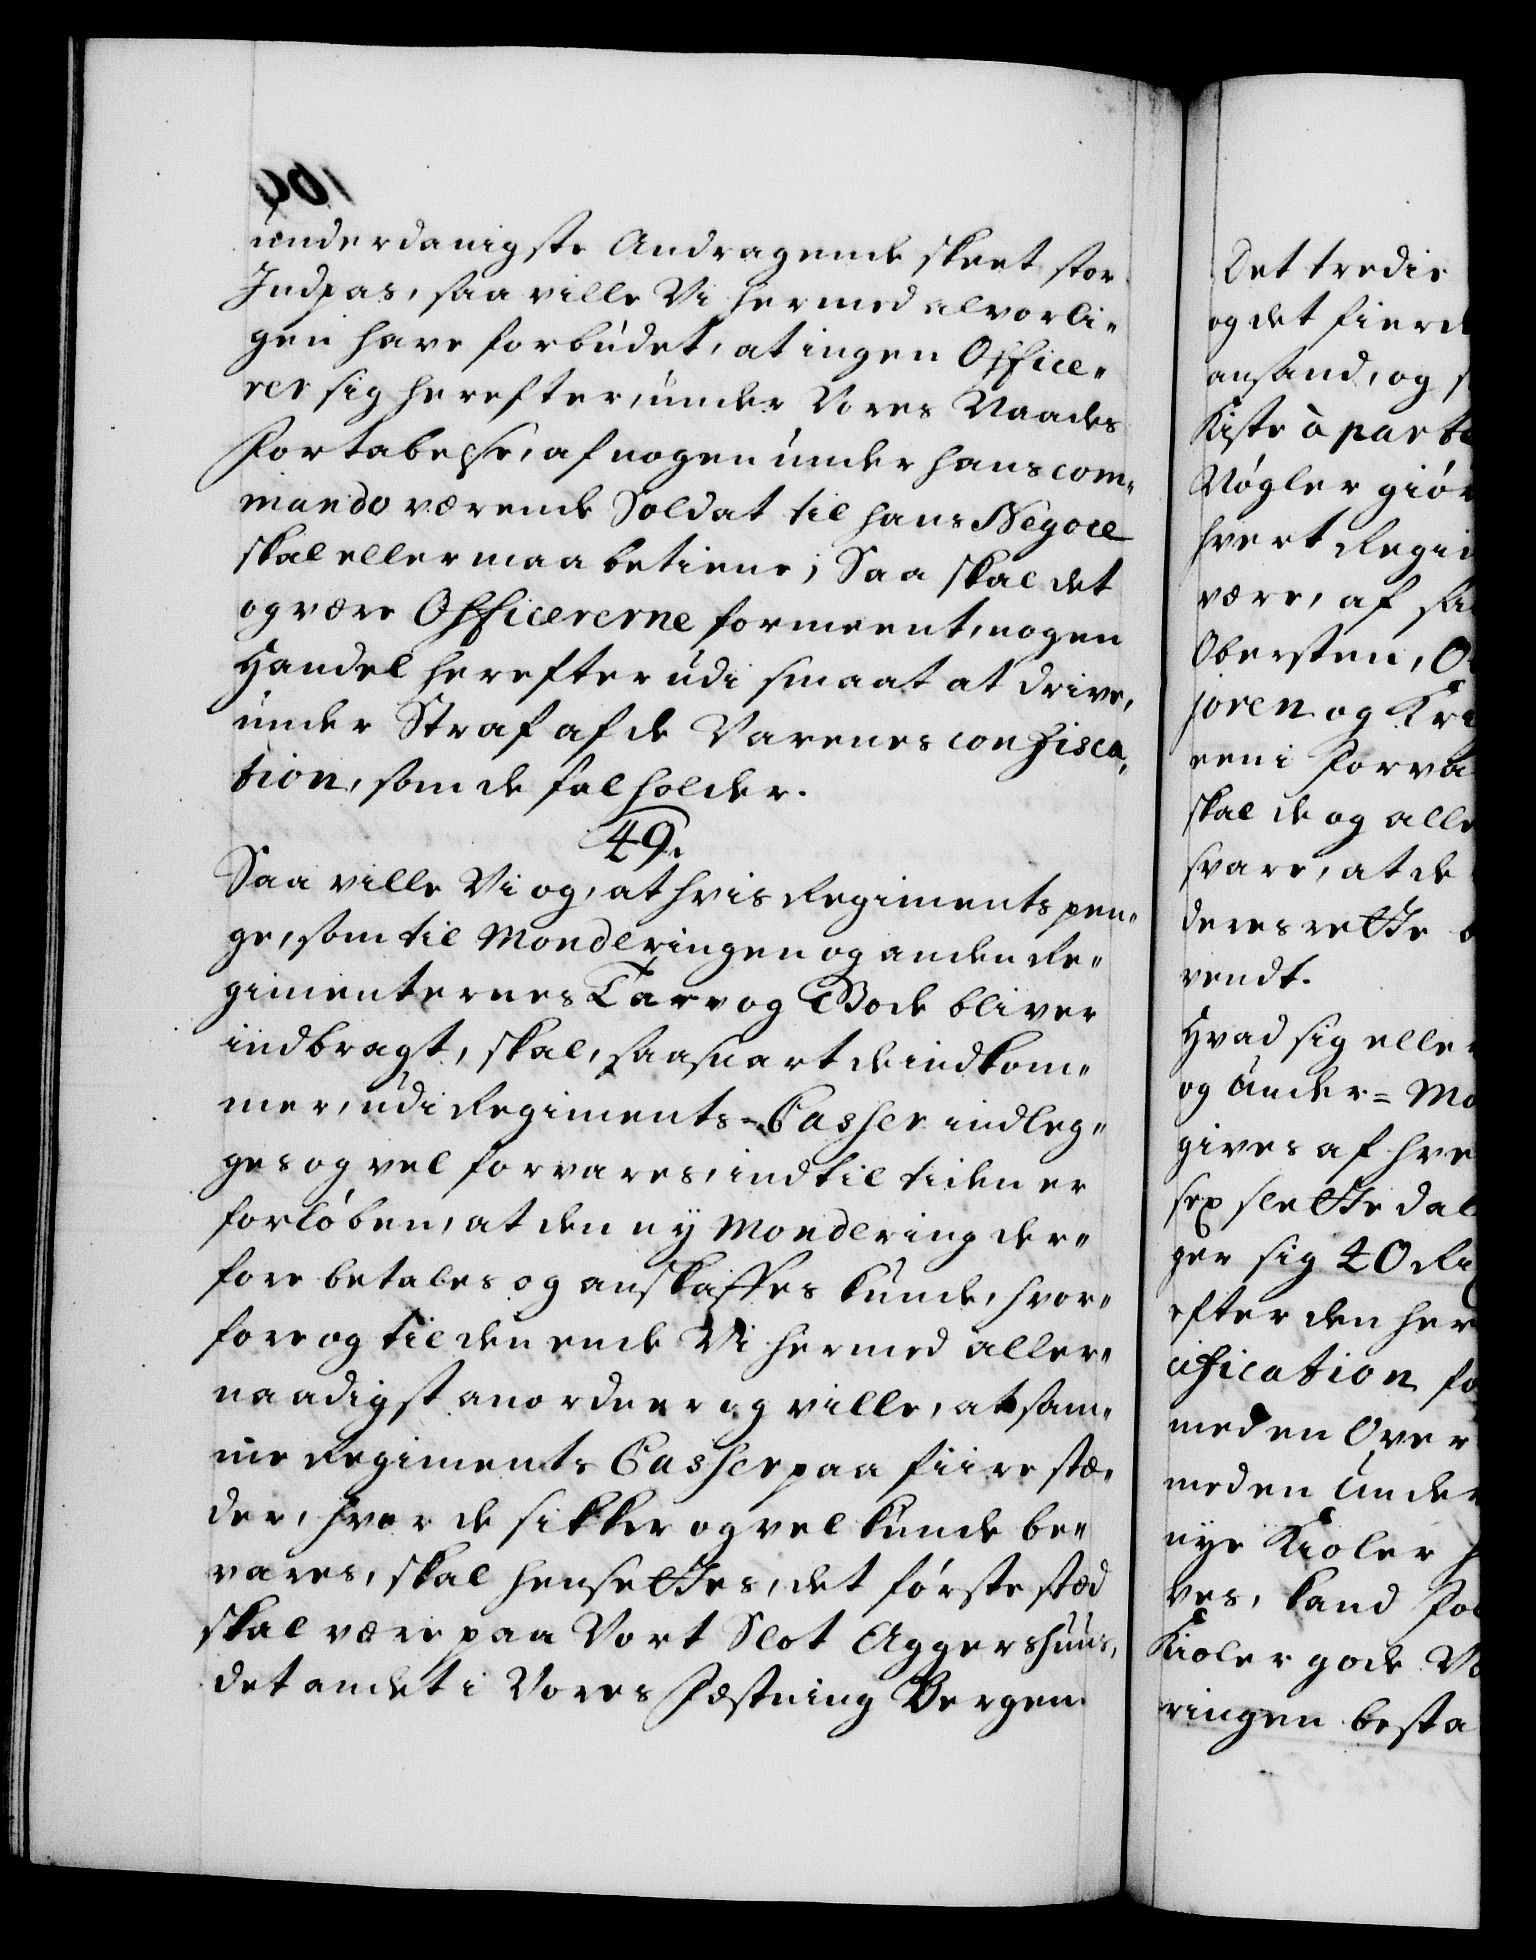 underdanigste Andragende skeet stor
Indpas, saa ville Vi hermed alvorli„
gen have forbudet, at ingen Office„
rer sig herefter, under Vores Naades
Fortabelse, af nogen under hans com„
mando værende Soldat til hans Negoce
skal eller maa betiene; Saa skal det
og være Officererne formeent, nogen
Handel herefter udi smaat at drive,
under Straf af de Varenes confisca„
tion, som de fal holder.
49.
Saa ville Vi og, at hvis Regiments pen„
ge, som til Monderingen og anden Re„
gimenternes Tarv og Bode bliver
indbragt, skal, saasnart de indkom„
mer, udi Regiments-Casser indleg„
ges og vel forvares, indtil tiden er
forløben, at den ny Mondering der„
fore betales og anskaffes kunde, hvor„
fore og til den ende Vi hermed aller„
naadigst anordner og ville, at sam„
me Regiments Casser paa fiire stæ„
der, hvor de sikker og vel kunde be„
vares, skal hensettes, det første sted
skal være paa Vort Slot Aggershuus,
det andet i Vores Fæstning Bergen
Det tredie
og det fierd
ansand, og s
Kiste à parte
Nøgler giør
hvert Regi
være, af
Obersten, O
joren og
een i Forva
skal de og alle
svare, at de
deres rette b
vendt.
Hvad sig elle
og Under= Mo
gives af hve
sex slette dal
ger sig 40 Ri
efter den her
cification fo
med en Over
med en Under
nye Kioler h
ves, kand For
Kioler gode Vo
ringen besta